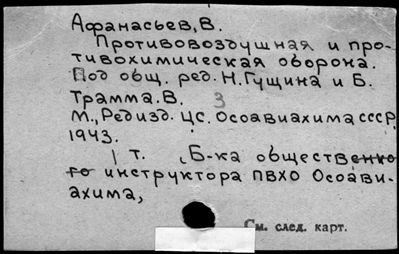 Афанасьев, В.
Противовоздушная и про-
тивохимическая оборона.
Под общ. ред. Н. Гущина и Б.
Трамма. В. 3
М., Редизд. ЦС. Осоавиахима СССР,
1943.
1 т. (Б-ка обществен
инструктора ПВХО Осоави-
ахима,
См. след. карт.